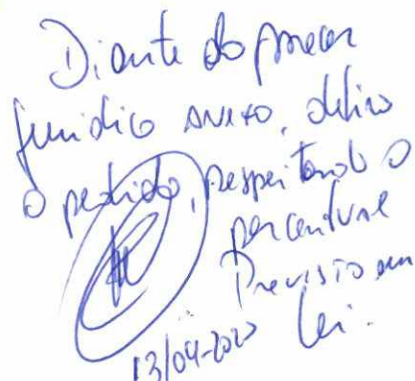 Diante do parecer
jurídico anexo, defiro
o pedido, respeitando o
percentual
Previsto em
lei.
13/04-2020